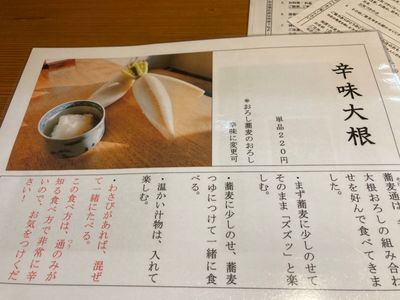 辛味大根
単品220円
※おろし蕎麦のおろし
辛味に変更可
蕎麦通は、
大根おろしの組み合わ
せを好んで食べてきま
した。
・まず蕎麦に少しのせて
そのまま「ズズッ」と楽
しむ。
・蕎麦に少しのせ、蕎麦
つゆにつけて一緒に食
べる。
・温かい汁物は、入れて
楽しむ。
・わさびがあれば、混ぜ
て一緒にたべる。
この食べ方は、通のみが
知る食べ方で非常に辛
いので、お気をつけくだ
さい!